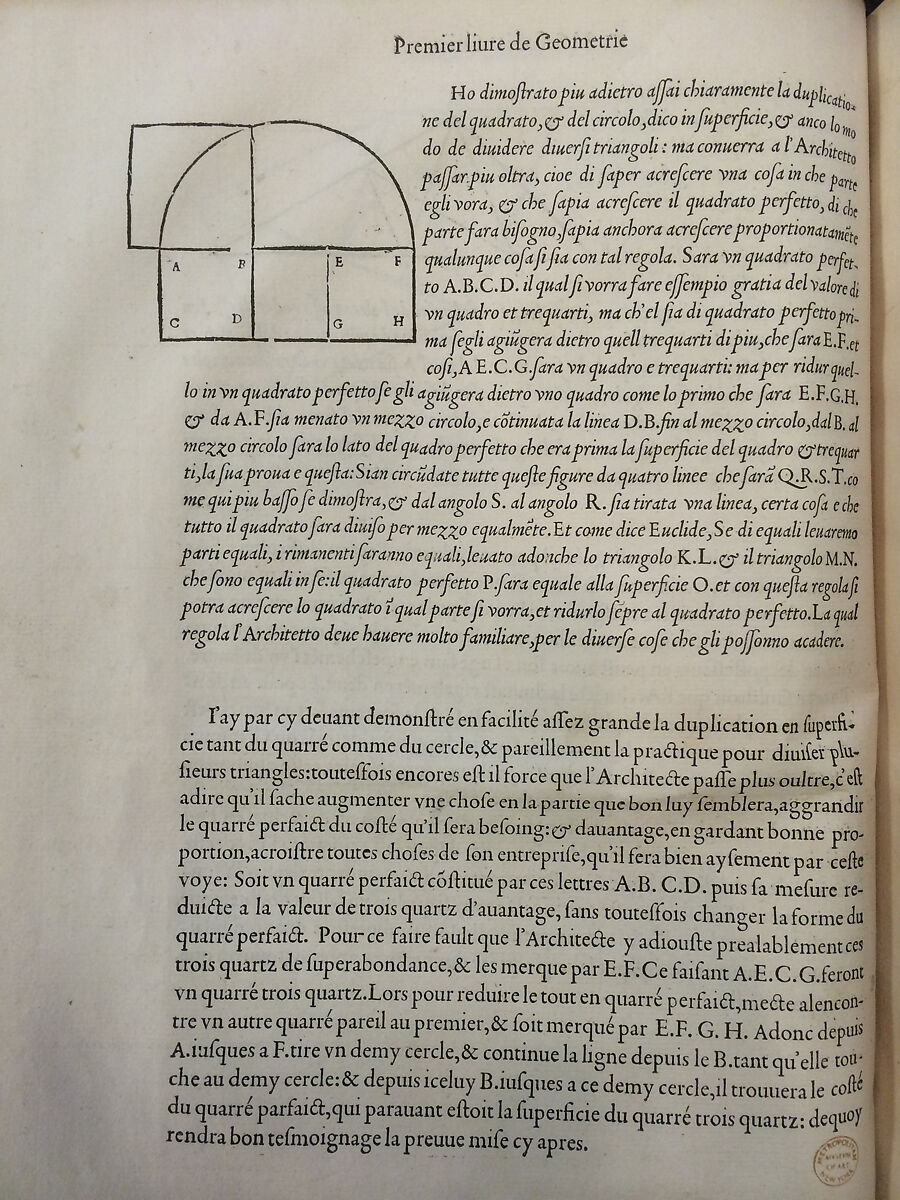 Premier liure de Geometrie
Ho dimoſtrato piu adietro aſſai chiaramente la duplicatio-
ne del quadrato, & del circolo, dico in ſuperficie, & anco lo mo
do de diuidere diuerſi triangoli: ma conuerra a l'Architetto
paſſar piu oltra, cioe di ſaper acreſcere vna coſa in che parte
egli vora, & che ſapia acreſcere il quadrato perfetto, di che
parte ſara biſogno, ſapia anchora acreſcere proportionatamẽte
qualunque coſa ſi ſia con tal regola. Sara vn quadrato perfet-
to A.B.C.D. il qual ſi vorra fare eſſempio gratia del valore di
vn quadro et trequarti, ma ch'el ſia di quadrato perfetto pri-
ma ſegli agiũgera dietro quell trequarti di piu, che ſara E.F. et
coſi, A E.C.G. ſara vn quadro e trequarti: ma per ridur quel-
lo in vn quadrato perfetto ſe gli agiũgera dietro vno quadro come lo primo che ſara E.F.G.H.
& da A.F. ſia menato vn mezzo circolo, e cõtinuata la linea D.B. fin al mezzo circolo, dal B. al
mezzo circolo ſara lo lato del quadro perfetto che era prima la ſuperficie del quadro & trequar
ti, la ſua proua e queſta: Sian circũdate tutte queſte figure da quatro linee che ſarã Q.R.S.T. co
me qui piu baſſo ſe dimoſtra, & dal angolo S. al angolo R. ſia tirata vna linea, certa coſa e che
tutto il quadrato ſara diuiſo per mezzo equalmẽte. Et come dice Euclide, Se di equali leuaremo
parti equali, i rimanenti ſaranno equali, leuato adonche lo triangolo K.L. & il triangolo M.N.
che ſono equali in ſe: il quadrato perfetto P. ſara equale alla ſuperficie O. et con queſta regola ſi
potra acreſcere lo quadrato ĩ qual parte ſi vorra, et ridurlo ſẽpre al quadrato perfetto. La qual
regola l'Architetto deue hauere molto familiare, per le diuerſe coſe che gli poſſonno acadere.
A B E F
C D G H
I'ay par cy deuant demonſtré en facilité aſſez grande la duplication en ſuperfi-
cie tant du quarré comme du cercle, & pareillement la practique pour diuiſer plu-
ſieurs triangles: touteſfois encores eſt il force que l'Architecte paſſe plus oultre, c'eſt
adire qu'il ſache augmenter vne choſe en la partie que bon luy ſemblera, aggrandir
le quarré perfaict du coſté qu'il ſera beſoing: & dauantage, en gardant bonne pro-
portion, acroiſtre toutes choſes de ſon entrepriſe, qu'il fera bien ayſement par ceſte
voye: Soit vn quarré perfaict cõſtitué par ces lettres A.B. C.D. puis ſa meſure re-
duicte a la valeur de trois quartz d'auantage, ſans touteſſois changer la forme du
quarré perfaict. Pour ce faire fault que l'Architecte y adiouſte prealablement ces
trois quartz de ſuperabondance, & les merque par E.F. Ce faiſant A.E.C.G. feront
vn quarré trois quartz. Lors pour reduire le tout en quarré perfaict, mecte alencon-
tre vn autre quarré pareil au premier, & ſoit merqué par E.F. G. H. Adonc depuis
A. iuſques a F. tire vn demy cercle, & continue la ligne depuis le B. tant qu'elle tou-
che au demy cercle: & depuis iceluy B. iuſques a ce demy cercle, il trouuera le coſté
du quarré parfaict, qui parauant eſtoit la ſuperficie du quarré trois quartz: dequoy
rendra bon teſmoignage la preuue miſe cy apres.
METROPOLITAN
MUSEUM
OF ART
NEW YORK